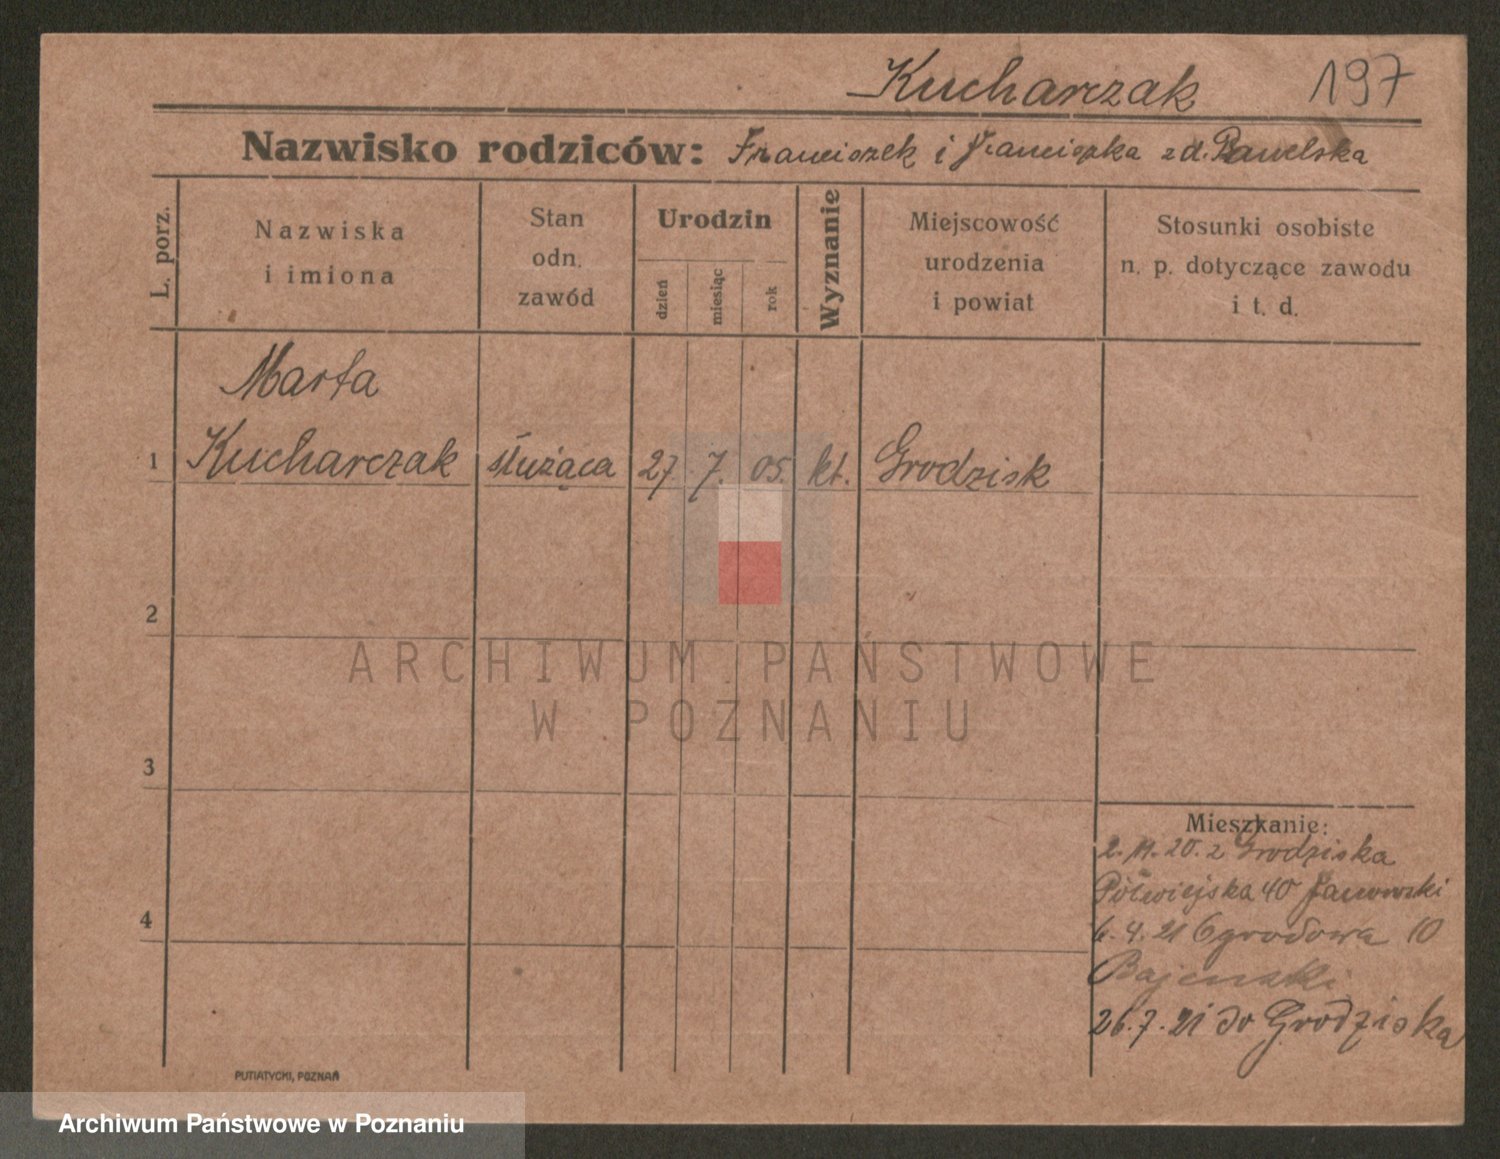 Kucharczak 197
Nazwisko rodziców: Franciszek i Franciszka z d. Pawelska
L. porz.
Nazwiska
i imiona
Stan
odn.
zawód
Urodzin
dzień
miesiąc
rok
Wyznanie
Miejscowość
urodzenia
i powiat
Stosunki osobiste
n. p. dotyczące zawodu
i t. d.
Marta
1 Kucharczak służąca 27. 7. 05. kt. Grodzisk
2
3
4
ARCHIWUM PAŃSTWOWE
W POZNANIU
Mieszkanie:
2. 11. 20. z Grodziska
Półwiejska 40 Janowski
6. 4. 21 Ogrodowa 10
26. 7. 21 do Grodziska
PUTIATYCKI, POZNAŃ
Archiwum Państwowe w Poznaniu